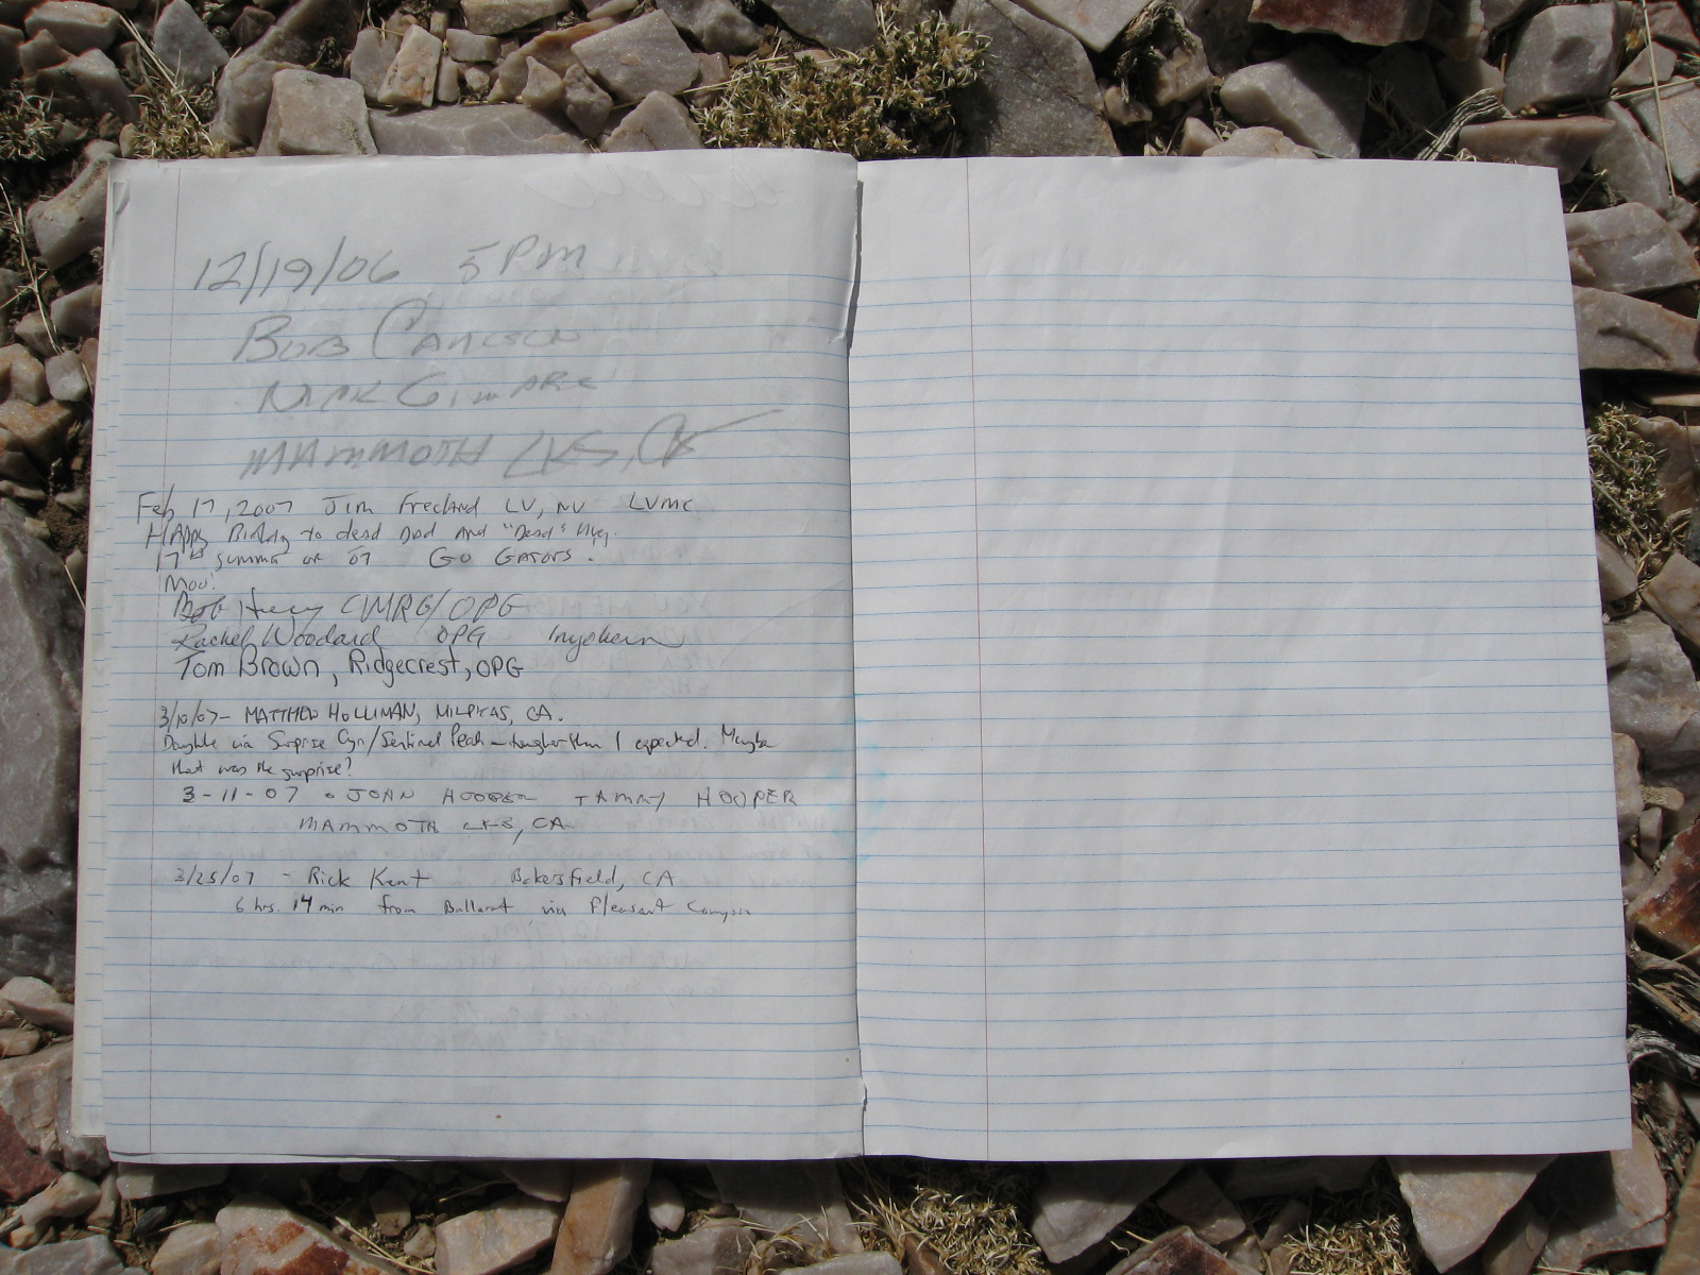 12/19/06 5 PM
BOB CARLSON
NICK
MAMMOTH LKS, CA
Feb 17, 2007 Jim Freeland LV, NV LVMC
HAppy Birthday to dead Dad and "Dead"
17th summit of 07 GO GATORS.
Moo!
BOB CMRG/OPG
Rachel Woodard OPG Inyokern
Tom Brown, Ridgecrest, OPG
3/10/07- MATTHEW HOLLIMAN, MILPITAS, CA.
Dayhike via Surprise Cyn/Sentinel Peak - tougher than I expected. Maybe
that was the surprise?
3-11-07 JOHN HOOPER TAMMY HOOPER
MAMMOTH LKS, CA
3/25/07 - Rick Kent Bakersfield, CA
6 hrs. 14 min from Ballarat via Pleasant Canyon